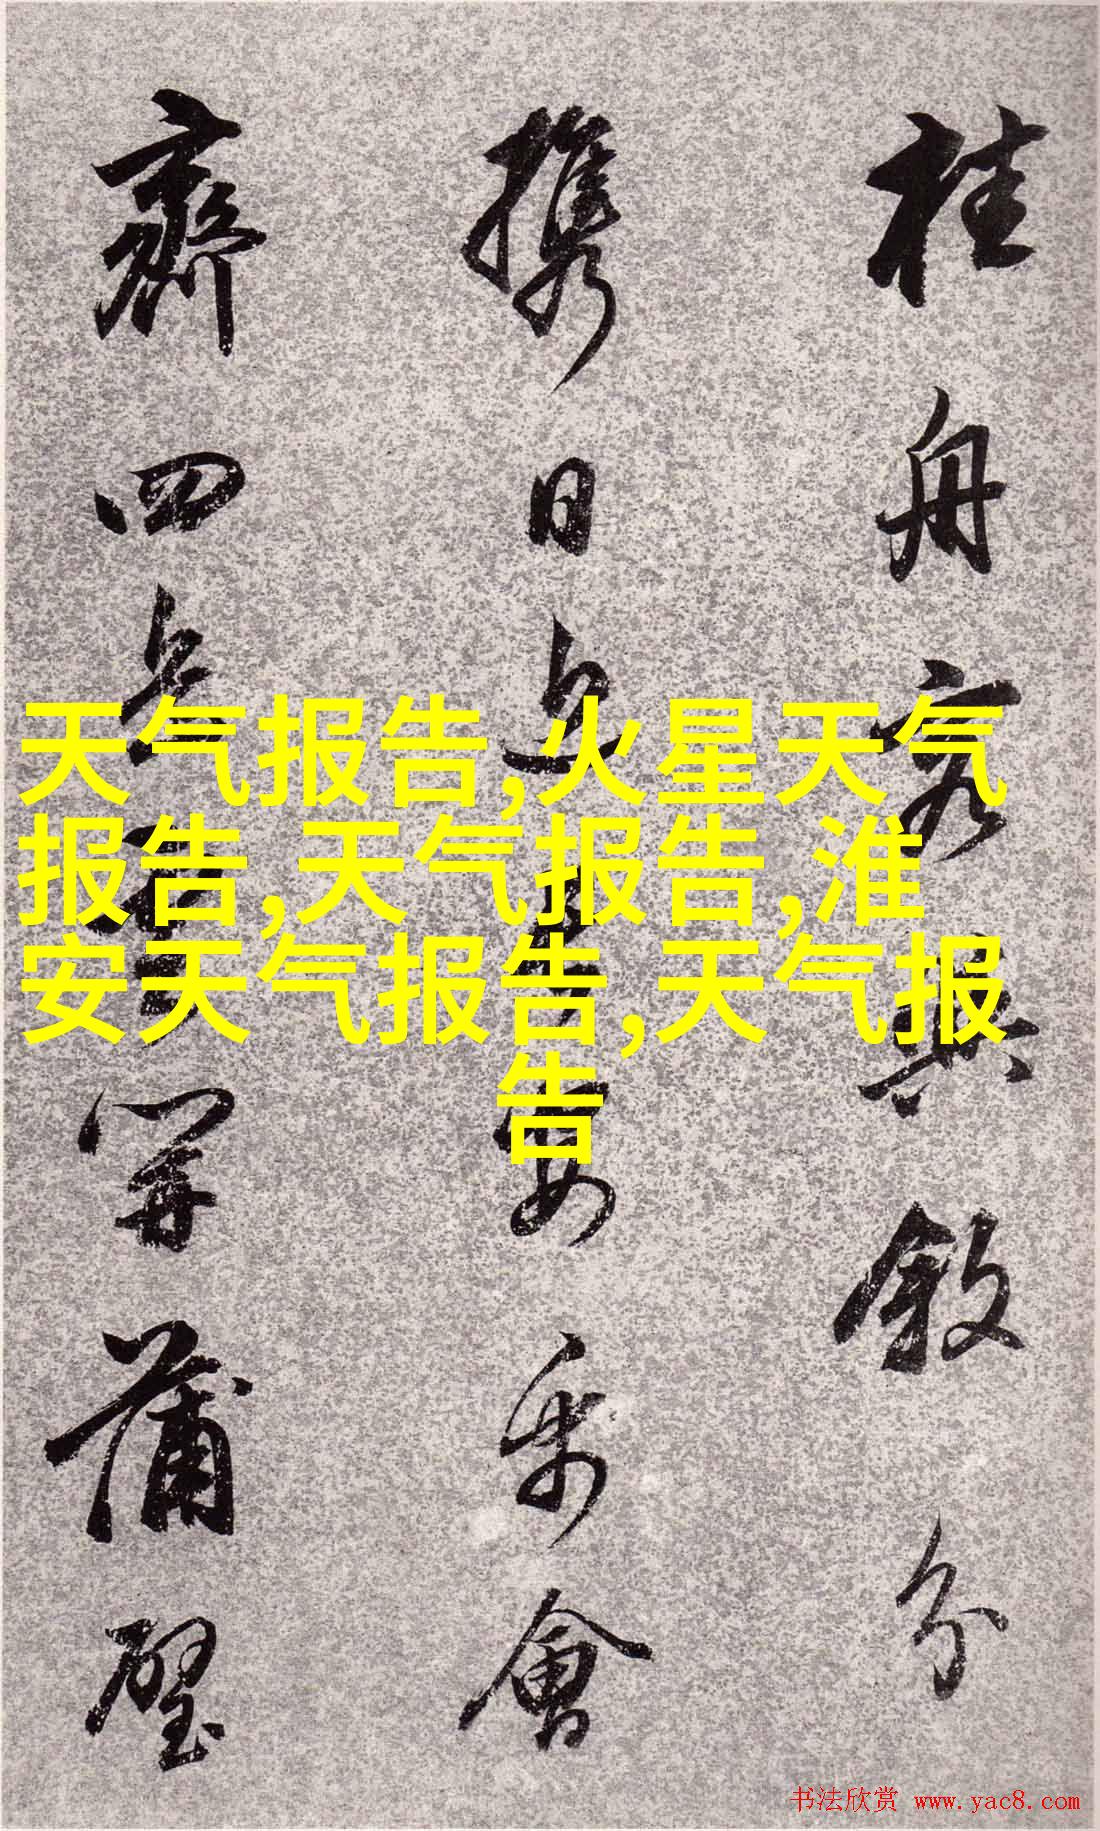 桂舟客興敘分
攜日邊
安乐會
齊四
開蒲壁
天气报告,火星天气
报告,天气报告,淮
安天气报告,天气报
告
书法欣赏 www.yac8.com